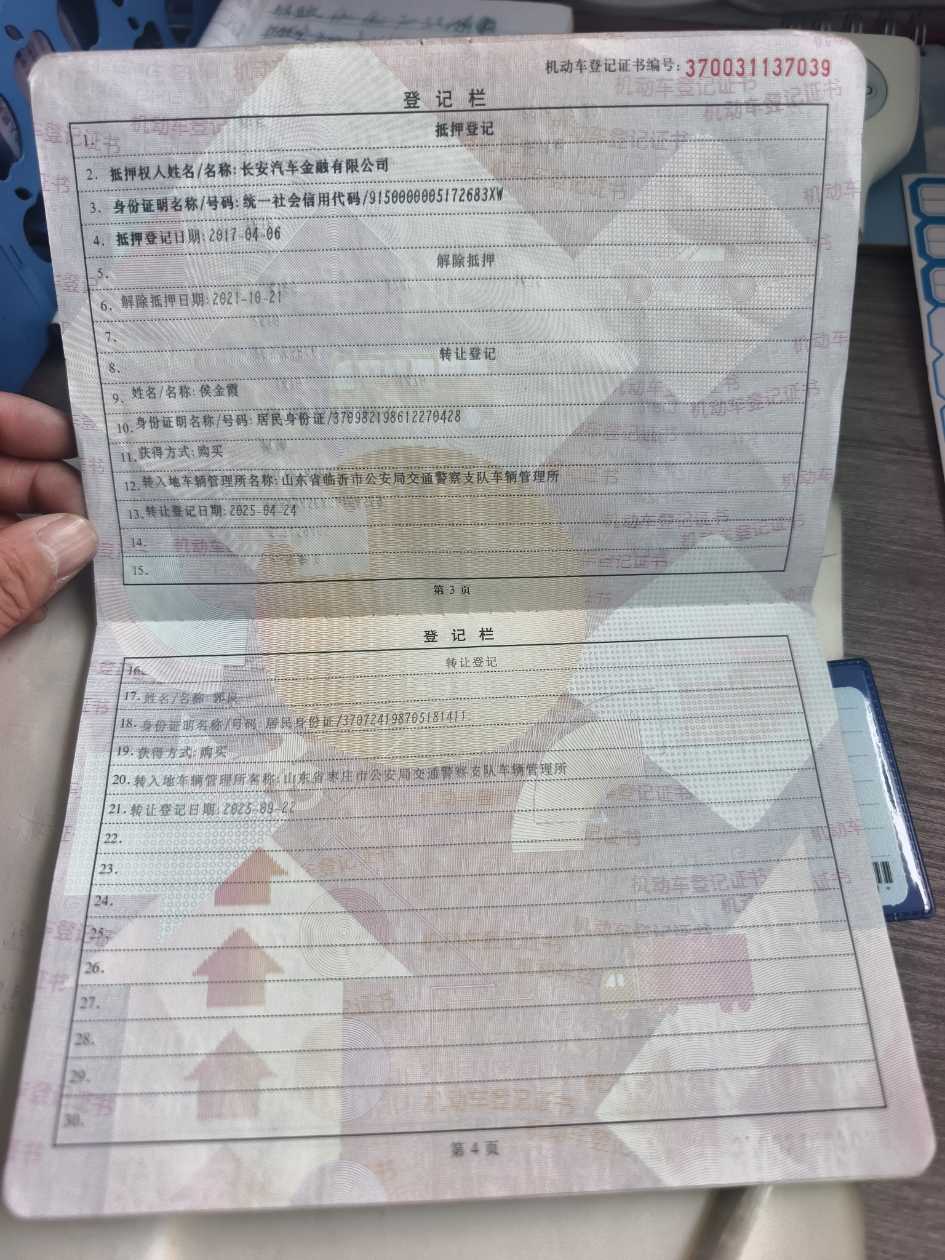 机动车登记证书编号: 370031137039
登记栏
1. 抵押登记
2. 抵押权人姓名/名称: 长安汽车金融有限公司
3. 身份证明名称/号码: 统一社会信用代码/9150000005172683XW
4. 抵押登记日期: 2017-04-06
5. 解除抵押
6. 解除抵押日期: 2021-10-21
7.
8. 转让登记
9. 姓名/名称: 侯金霞
10. 身份证明名称/号码: 居民身份证/370982198612270428
11. 获得方式: 购买
12. 转入地车辆管理所名称: 山东省临沂市公安局交通警察支队车辆管理所
13. 转让登记日期: 2025-04-24
14.
15.
第 3 页
登记栏
16. 转让登记
17. 姓名/名称: 郭良
18. 身份证明名称/号码: 居民身份证/370724198705181411
19. 获得方式: 购买
20. 转入地车辆管理所名称: 山东省枣庄市公安局交通警察支队车辆管理所
21. 转让登记日期: 2025-09-22
22.
23.
24.
25.
26.
27.
28.
29.
30.
第 4 页